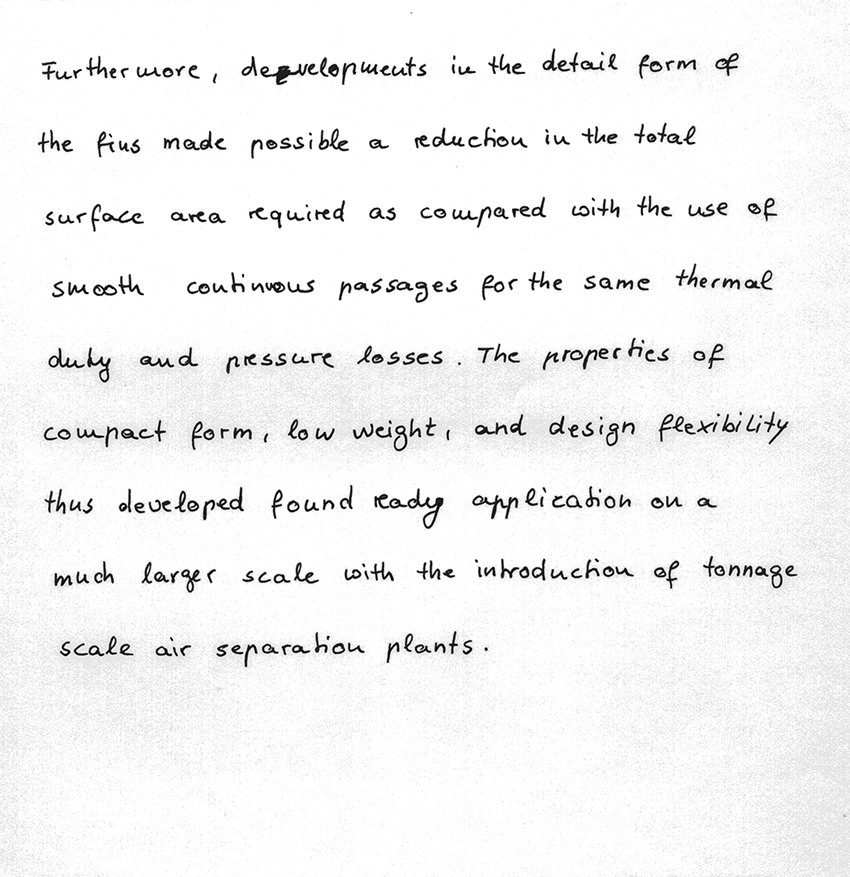 Furthermore, developments in the detail form of
the fins made possible a reduction in the total
surface area required as compared with the use of
smooth continuous passages for the same thermal
duty and pressure losses. The properties of
compact form, low weight, and design flexibility
thus developed found ready application on a
much larger scale with the introduction of tonnage
scale air separation plants.